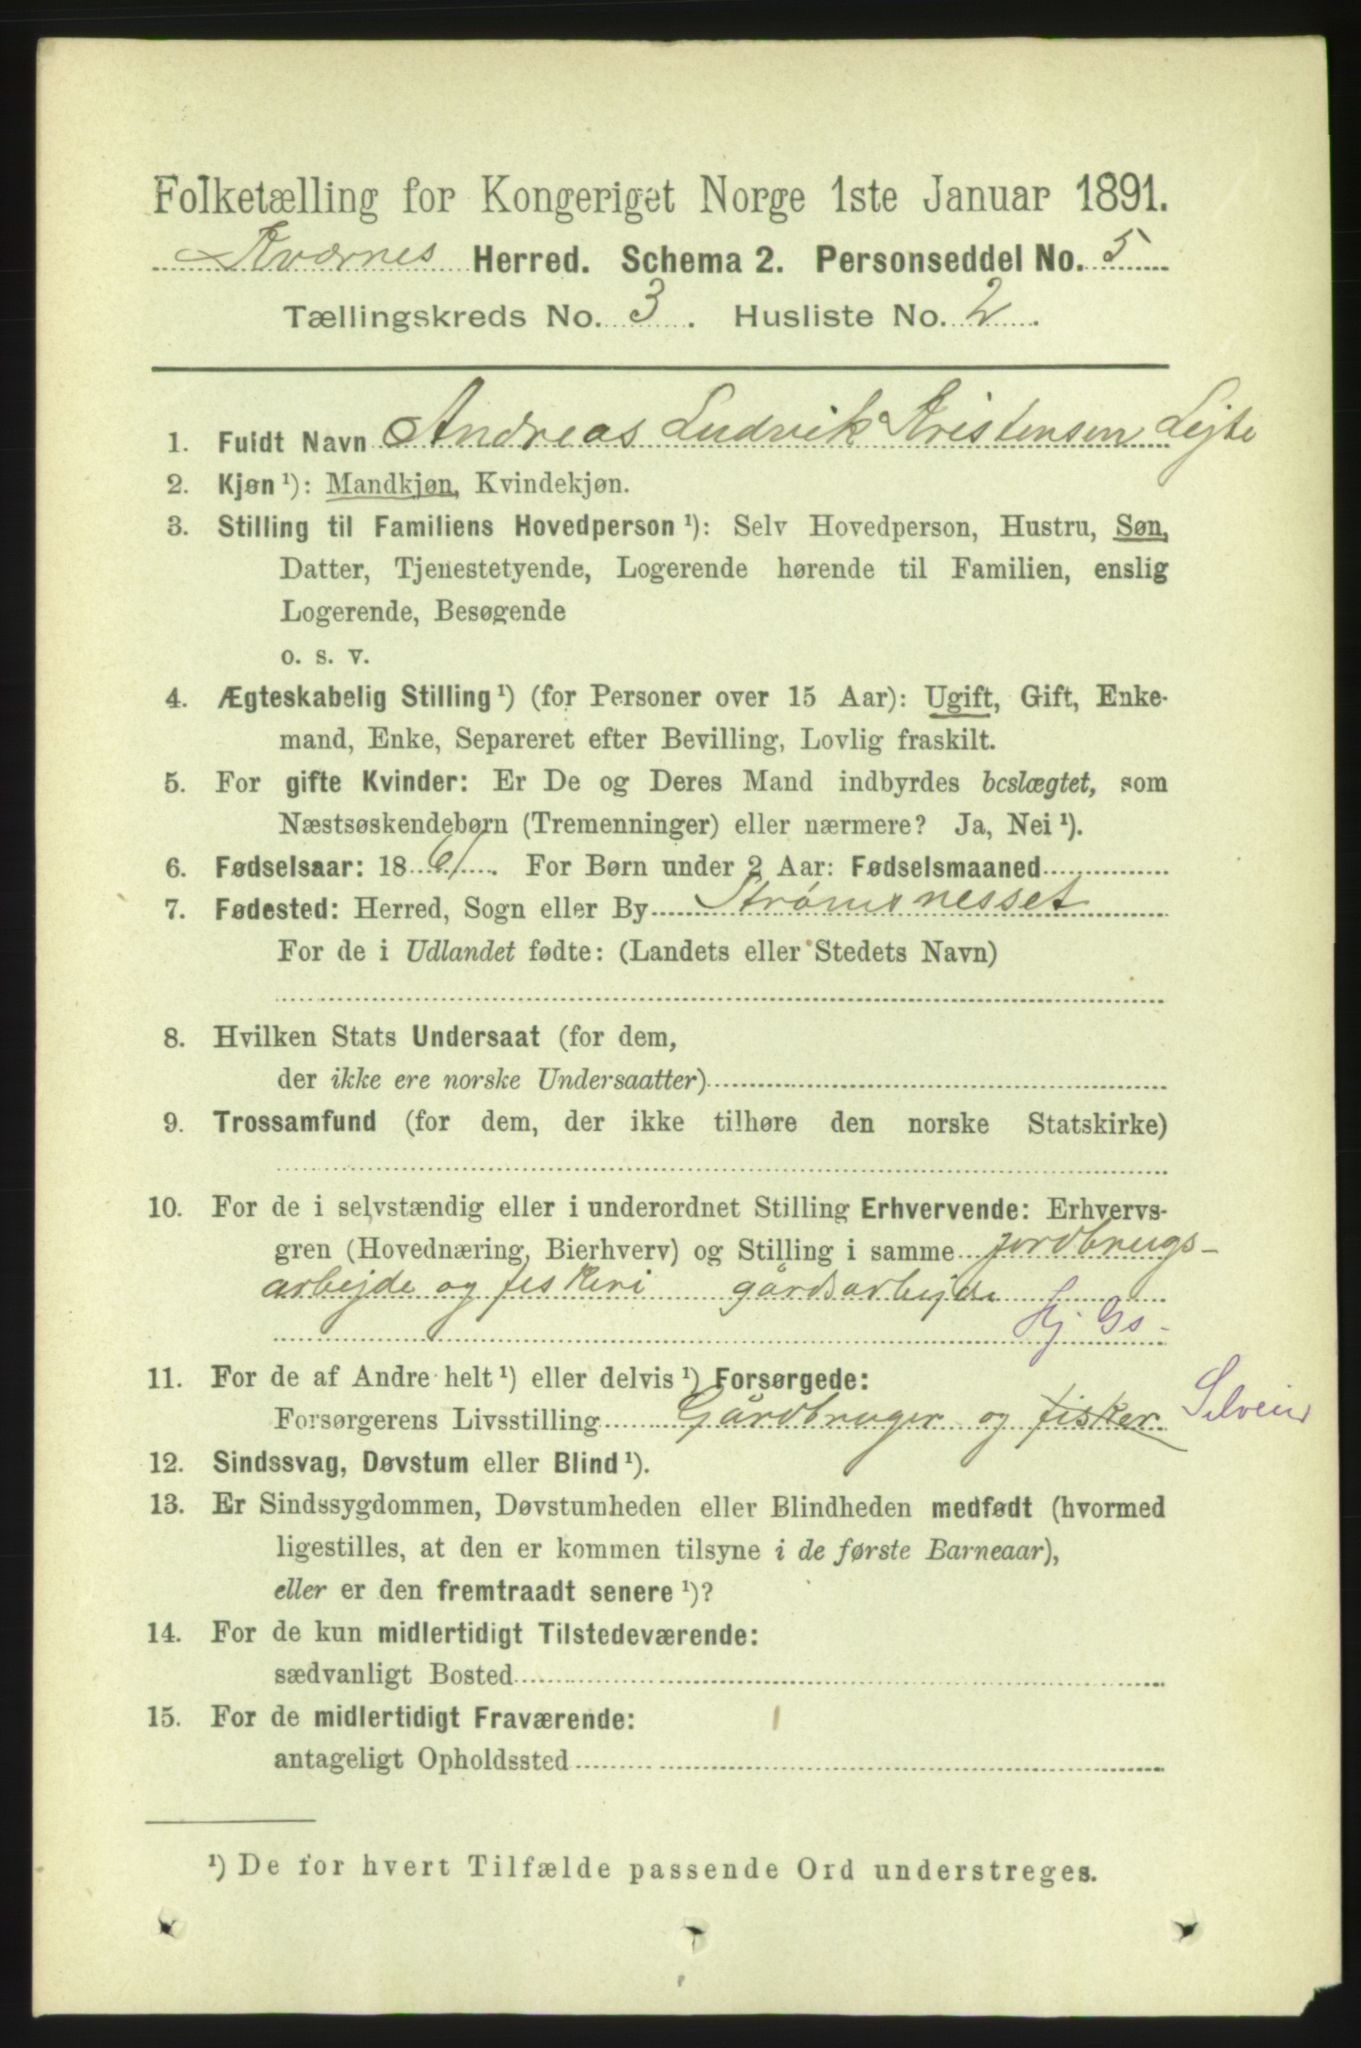 Folketælling for Kongeriget Norge 1ste Januar 1891.
Kværnes Herred. Schema 2. Personseddel No. 5
Tællingskreds No. 3. Husliste No. 2.
1. Fuldt Navn Andreas Ludvik Kristensen Lejte
2. Kjøn ¹): Mandkjøn, Kvindekjøn.
3. Stilling til Familiens Hovedperson ¹): Selv Hovedperson, Hustru, Søn,
Datter, Tjenestetyende, Logerende hørende til Familien, enslig
Logerende, Besøgende
o. s. v.
4. Ægteskabelig Stilling ¹) (for Personer over 15 Aar): Ugift, Gift, Enke-
mand, Enke, Separeret efter Bevilling, Lovlig fraskilt.
5. For gifte Kvinder: Er De og Deres Mand indbyrdes beslægtet, som
Næstsøskendebørn (Tremenninger) eller nærmere? Ja, Nei ¹).
6. Fødselsaar: 1861. For Børn under 2 Aar: Fødselsmaaned
7. Fødested: Herred, Sogn eller By Strømsnesset
For de i Udlandet fødte: (Landets eller Stedets Navn)
8. Hvilken Stats Undersaat (for dem,
der ikke ere norske Undersaatter)
9. Trossamfund (for dem, der ikke tilhøre den norske Statskirke)
10. For de i selvstændig eller i underordnet Stilling Erhvervende: Erhvervs-
gren (Hovednæring, Bierhverv) og Stilling i samme jordbrugs-
arbejde og fiskeri gårdsarbejde
Hj. Gs -
11. For de af Andre helt ¹) eller delvis ¹) Forsørgede:
Forsørgerens Livsstilling Gårdbruger og fisker Selveier
12. Sindssvag, Døvstum eller Blind ¹).
13. Er Sindssygdommen, Døvstumheden eller Blindheden medfødt (hvormed
ligestilles, at den er kommen tilsyne i de første Barneaar),
eller er den fremtraadt senere ¹)?
14. For de kun midlertidigt Tilstedeværende:
sædvanligt Bosted
15. For de midlertidigt Fraværende:
antageligt Opholdssted
¹) De for hvert Tilfælde passende Ord understreges.